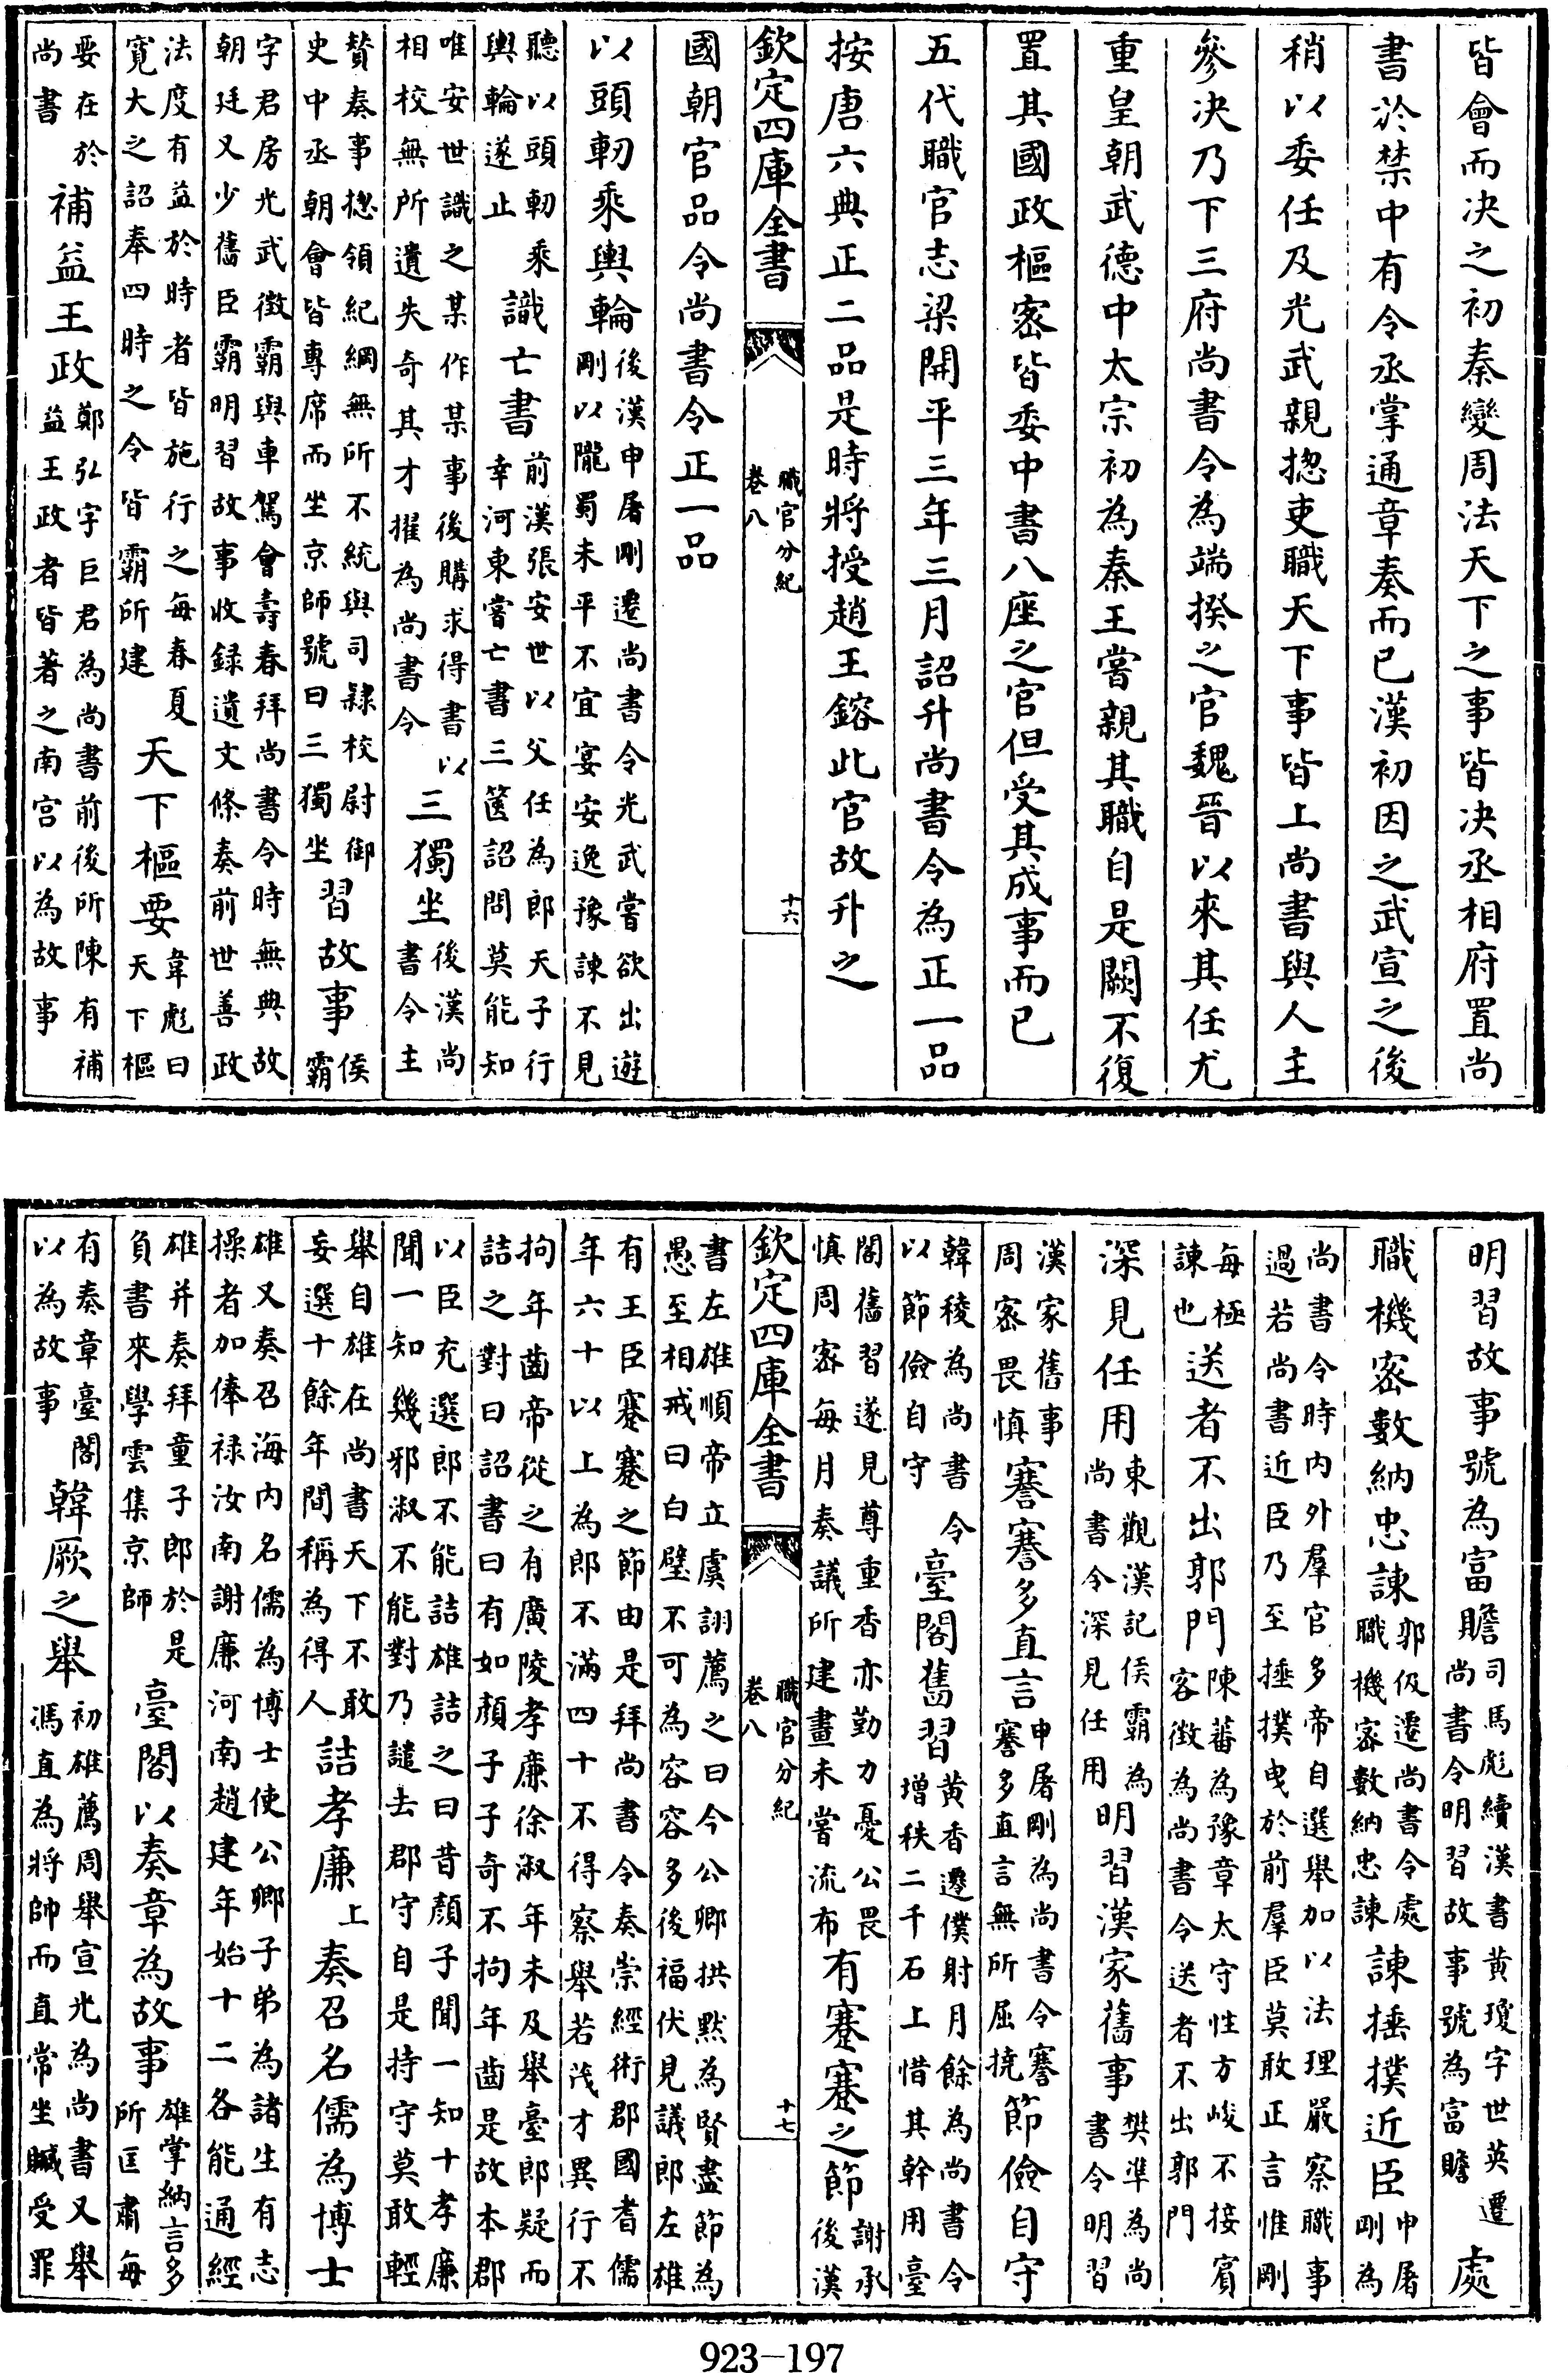 皆會而决之初秦變周法天下之事皆决丞相府置尚
書於禁中有令丞掌通章奏而已漢初因之武宣之後
稍以委任及光武親揔吏職天下事皆上尚書與人主
參决乃下三府尚書令為端揆之官魏晉以來其任尤
重皇朝武德中太宗初為秦王嘗親其職自是闕不復
置其國政樞宻皆委中書八座之官但受其成事而已
五代職官志梁開平三年三月詔升尚書令為正一品
按唐六典正二品是時將授趙王鎔此官故升之
欽定四庫全書
職官分紀
卷八
十六
國朝官品令尚書令正一品
以頭軔乘輿輪
後漢申屠剛遷尚書令光武嘗欲出遊
剛以隴蜀未平不宜宴安逸豫諫不見
聽以頭軔乘
輿輪遂止
識亡書
前漢張安世以父任為郎天子行
幸河東嘗亡書三篋詔問莫能知
唯安世識之某作某事後購求得書以
相校無所遺失奇其才擢為尚書令
三獨坐
後漢尚
書令主
贊奏事揔領紀綱無所不統與司隸校尉御
史中丞朝會皆專席而坐京師號曰三獨坐
習故事
侯
霸
字君房光武徵霸與車駕會壽春拜尚書令時無典故
朝廷又少舊臣霸明習故事收録遺文條奏前世善政
法度有益於時者皆施行之每春夏
寛大之詔奉四時之令皆霸所建
天下樞要
韋彪曰
天下樞
要在於
尚書
補益王政
鄭弘字巨君為尚書前後所陳有補
益王政者皆著之南宫以為故事
明習故事號為富贍
司馬彪續漢書黄瓊字世英遷
尚書令明習故事號為富贍
處
職機宻數納忠諫
郭伋遷尚書令處
職機宻數納忠諫
諫捶撲近臣
申屠
剛為
尚書令時内外羣官多帝自選舉加以法理嚴察職事
過若尚書近臣乃至捶撲曳於前羣臣莫敢正言惟剛
每極
諫也
送者不出郭門
陳蕃為豫章太守性方峻不接賓
客徵為尚書令送者不出郭門
深見任用
東觀漢記侯霸為
尚書令深見任用
明習漢家舊事
樊凖為尚
書令明習
漢家舊事
周宻畏慎
謇謇多直言
申屠剛為尚書令謇
謇多直言無所屈撓
節儉自守
韓稜為尚書令
以節儉自守
臺閣舊習
黄香遷僕射月餘為尚書令
增秩二千石上惜其幹用臺
閣舊習遂見尊重香亦勤力憂公畏
慎周宻每月奏議所建畫未嘗流布
有蹇蹇之節
謝承
後漢
欽定四庫全書
職官分紀
卷八
十七
書左雄順帝立虞詡薦之曰今公卿拱黙為賢盡節為
愚至相戒曰白璧不可為容容多後福伏見議郎左雄
有王臣蹇蹇之節由是拜尚書令奏崇經術郡國耆儒
年六十以上為郎不滿四十不得察舉若茂才異行不
拘年齒帝從之有廣陵孝廉徐淑年未及舉臺郎疑而
詰之對曰詔書曰有如顏子子奇不拘年齒是故本郡
以臣充選郎不能詰雄詰之曰昔顏子聞一知十孝廉
聞一知幾邪淑不能對乃譴去郡守自是持守莫敢輕
舉自雄在尚書天下不敢
妄選十餘年間稱為得人
詰孝廉
上
奏召名儒為博士
雄又奏召海内名儒為博士使公卿子弟為諸生有志
操者加俸禄汝南謝廉河南趙建年始十二各能通經
雄并奏拜童子郎於是
負書來學雲集京師
臺閣以奏章為故事
雄掌納言多
所匡肅每
有奏章臺閣
以為故事
韓厥之舉
初雄薦周舉宣光為尚書又舉
馮直為將帥而直常坐贓受罪
923-197